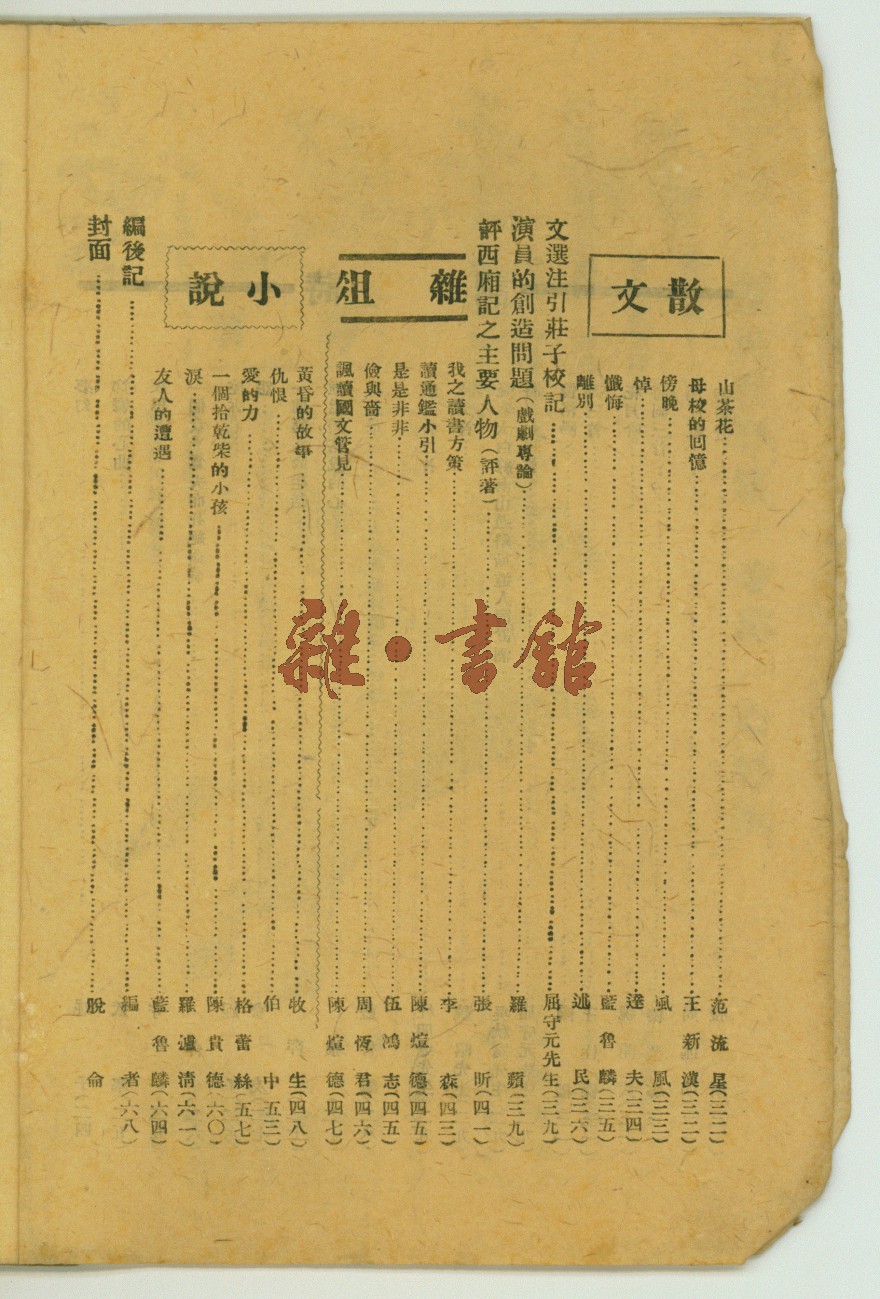 散文
山茶花 范流星（三二）
母校的回憶 王新漢（三二）
傍晚 風風（三三）
悼 達夫（三四）
懺悔 藍魯麟（三五）
離別 述民（三六）
文選注引莊子校記 屈守元先生（三九）
演員的創造問題（戲劇專論） 羅蘋（三九）
評西廂記之主要人物（評著） 張昕（四一）
雜俎
我之讀書方策 李森（四三）
讀通鑑小引 陳煊德（四五）
是是非非 伍鴻志（四五）
儉與嗇 周恆君（四六）
諷讀國文管見 陳煊德（四七）
小說
黃昏的故事 牧生（四八）
仇恨 伯中（五三）
愛的力 格蕾絲（五七）
一個拾乾柴的小孩 陳貴德（六〇）
淚 羅濾清（六一）
友人的遭遇 藍魯麟（六四）
編後記 編者（六八）
封面 脫侖
雜·書館